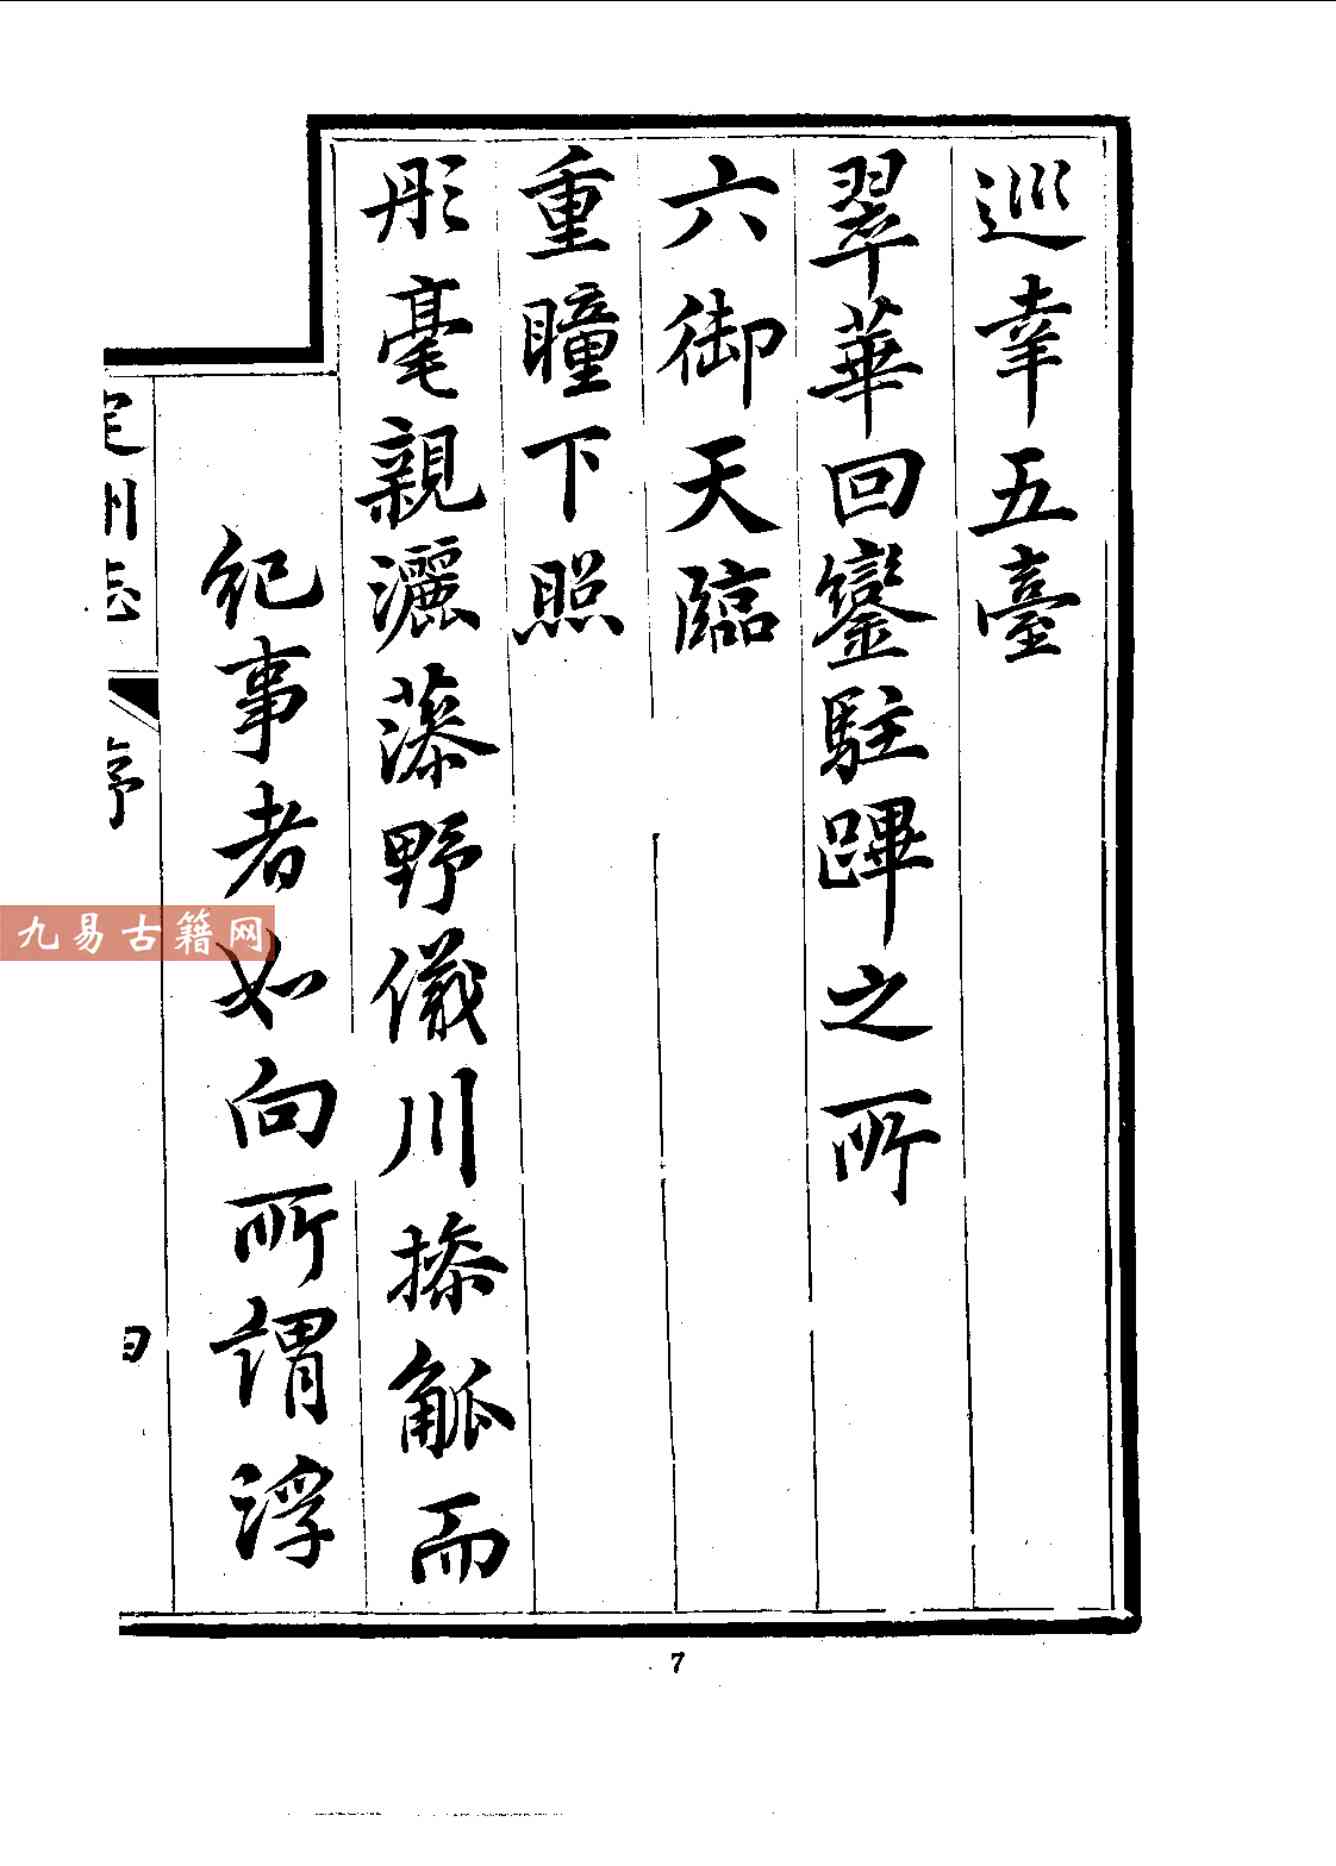 巡幸五臺
翠華回鑾駐蹕之所
六御天臨
重瞳下照
彤毫親灑藻野儀川搽觚而
紀事者如向所謂浮
定州志
序
九易古籍网
7